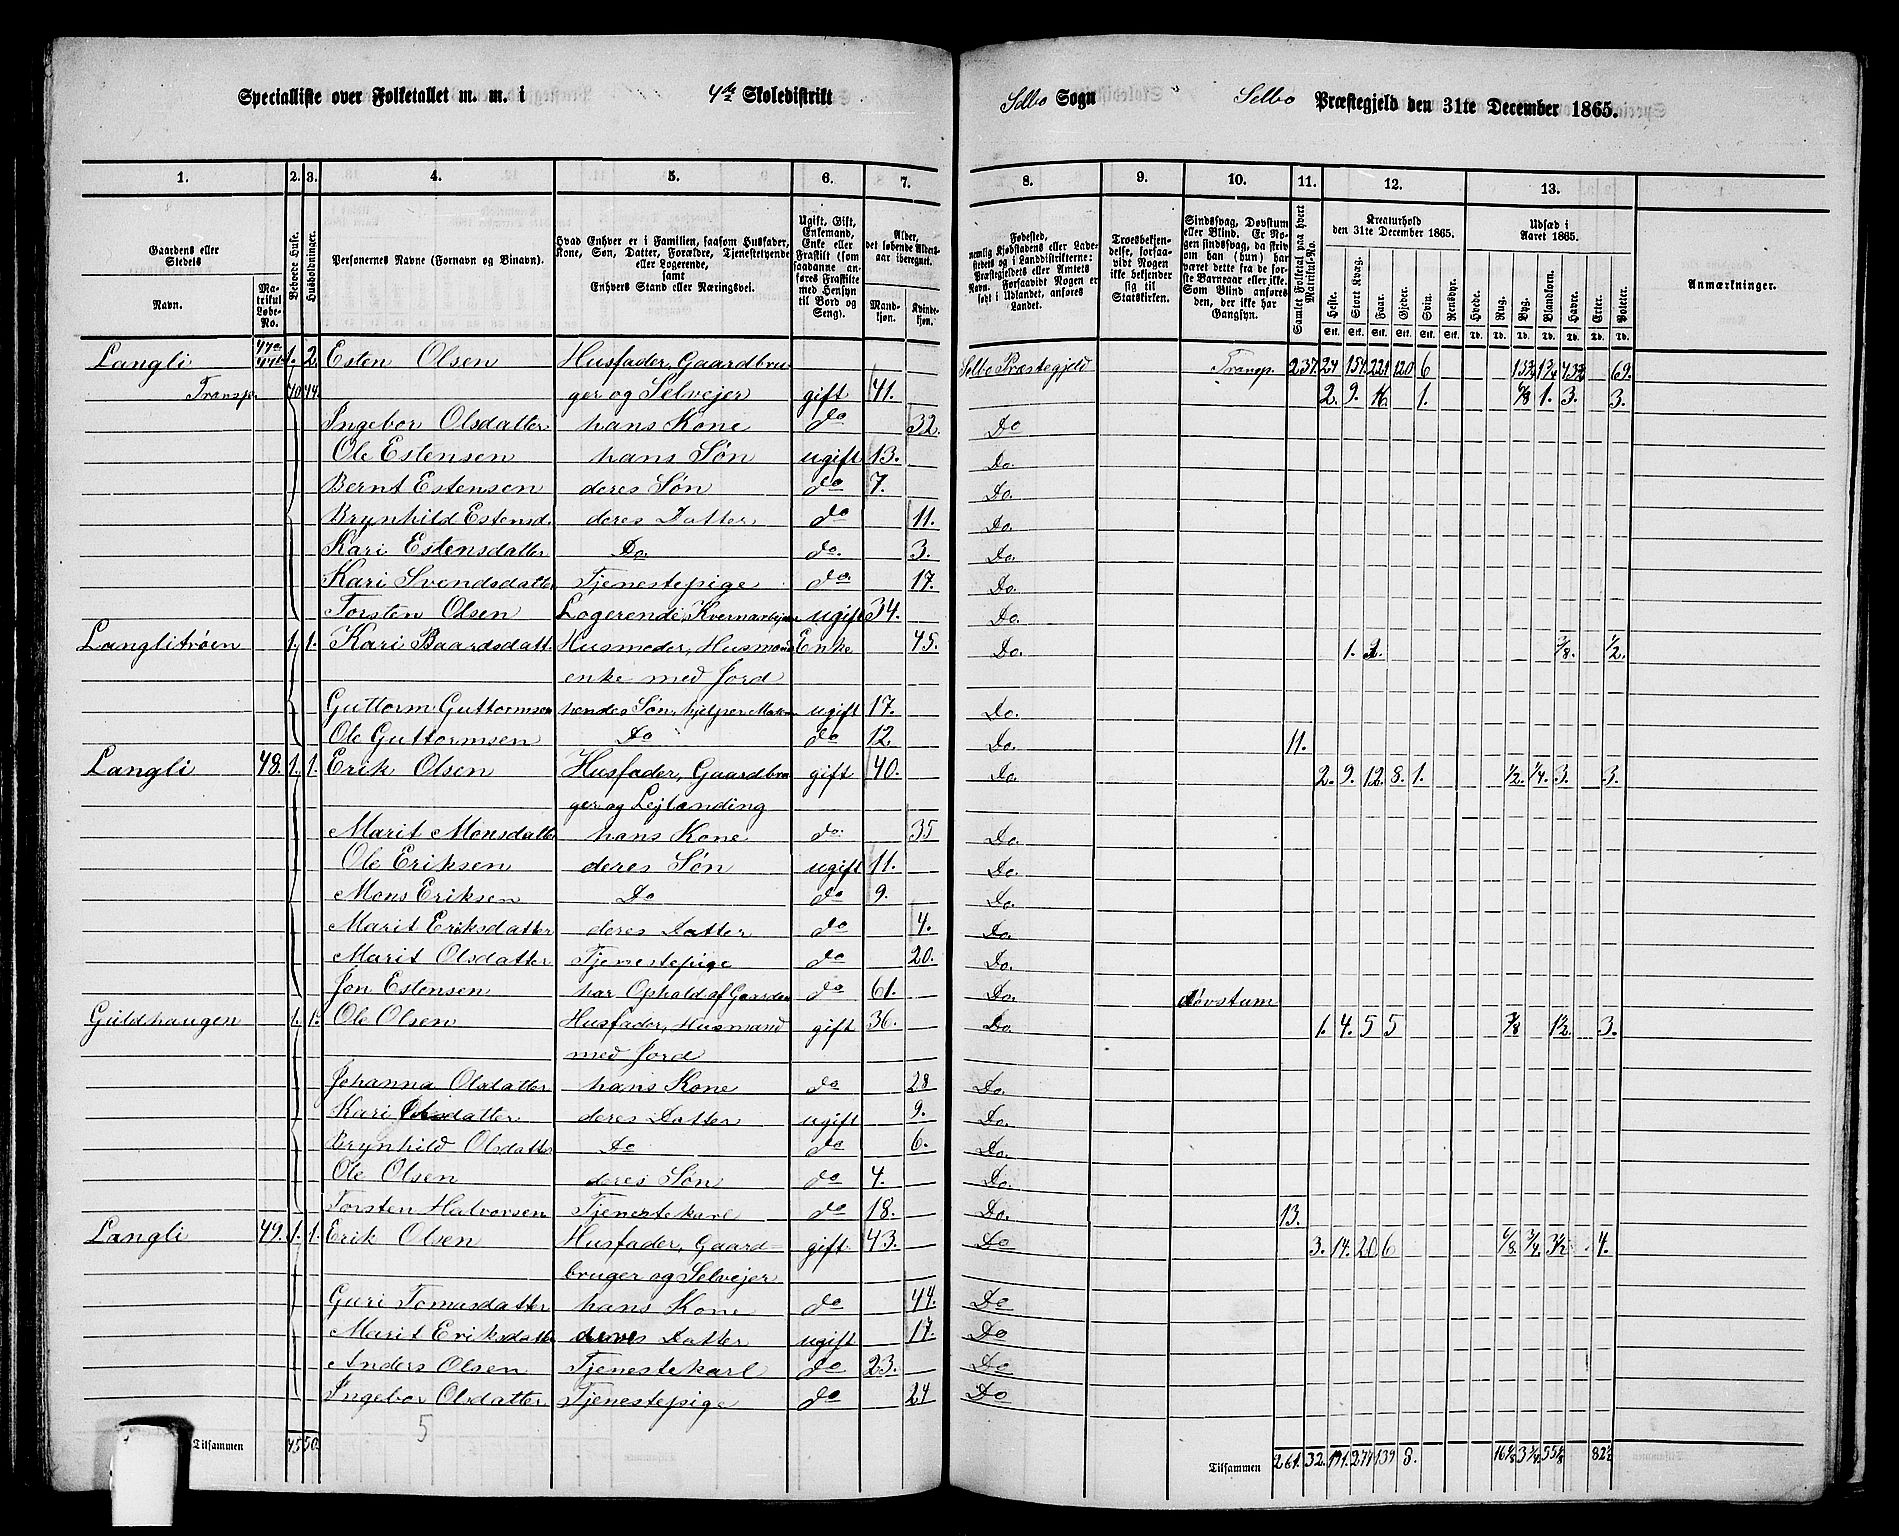 Specialliste over Folketallet m. m. i 4de Skoledistrikt Selbo Sogn Selbo Præstegjeld den 31te December 1865.
1. 2. 3. 4. 5. 6. 7. 8. 9. 10. 11. 12. 13.
Gaardens eller Stedets
Navn.
Matrikul Løbe-No.
Beboede Huse.
Husholdninger.
Personernes Navne (Fornavn og Binavn).
Hvad Enhver er i Familien, saasom Husfader, Kone, Søn, Datter, Forældre, Tjenestetyende eller Logerende,
samt
Enhvers Stand eller Næringsvei.
Ugift, Gift, Enkemand, Enke eller Fraskilt (som saadanne anføres Fraskilte med Hensyn til Bord og Seng).
Alder, det løbende Aldersaar iberegnet.
Mandkjøn. Kvindekjøn.
Fødested,
nemlig Kjøbstadens eller Ladestedets og i Landdistrikterne: Præstegjeldets eller Amtets Navn. Forsaavidt Nogen er født i Udlandet, anføres Landet.
Troesbekjendelse, forsaavidt Nogen ikke bekjender sig til Statskirken.
Sindssvag, Døvstum eller Blind. Er Nogen sindssvag, da skriv om han (hun) har været dette fra de første Barneaar eller ikke. Som Blind anføres den, der ikke har Gangsyn.
Samlet Folketal paa hvert Matrikul-No.
Kreaturhold
den 31te December 1865.
Heste. Stort Kvæg. Faar. Gjeder. Svin. Rensdyr.
Udsæd i
Aaret 1865.
Hvede. Rug. Byg. Blandkorn. Havre. Erter. Poteter.
Anmærkninger.
Langli 1. 2. Esten Olsen Husfader, Gaardbru- Selbo Præstegjeld Transp. 237 24 154 221 120 6
Transp. 70 44. ger og Selvejer gift 41. 2. 9. 1. 1. 3. 3.
Ingebor Olsdatter hans Kone do 32. Do
Ole Estensen hans Søn ugift 13. Do.
Bernt Estensen deres Søn do 7. Do.
Brynhild Estensd. deres Datter do 11. Do.
Kari Estensdatter Do. do. 3. Do.
Kari Svendsdatter Tjenestepige do. 17. Do.
Torsten Olsen Logerende, ugift 34. Do.
Langlitrøen 1. 1. Kari Baardsdatt. Husmoder, Husmands Enke 45. Do. 1. 3/8. 1/2.
enke med Jord
Guttorm Guttormsen hendes Søn, hjelper ugift 17. Do.
Ole Guttormsen Do do 12. Do. 11.
Langli 48. 1. 1. Erik Olsen Husfader, Gaardbru gift 40. Do 2. 9. 12. 8. 1. 1/2. 1/4. 3. 3.
ger og Lejlænding
Marit Monsdatter hans Kone do. 35 Do.
Ole Eriksen deres Søn ugift 11. Do.
Mons Eriksen Do do 9. Do.
Marit Eriksdatter deres Datter do 4. Do.
Marit Olsdatter Tjenestepige do 20. Do.
Jon Estensen har Ophold af Gaarden do 61. Do. døvstum
Guldhaugen 1. 1. Ole Olsen Husfader, Husmand gift 36. Do. 1. 4. 5 5 3.
med Jord
Johanna Olsdatter hans Kone do 28 Do.
Kari Olsdatter deres Datter ugift 9. Do.
Brynhild Olsdatter Do do 6. Do.
Ole Olsen deres Søn do 4. Do.
Torsten Halvorsen Tjenestekarl do 18. Do. 13.
Langli 49. 1. 1. Erik Olsen Husfader, Gaard= gift 43. Do 3. 14. 20 6 6/8. 3/4. 3 1/2 4.
bruger og Selvejer
Guri Tomasdatter hans Kone do 44. Do
Marit Eriksdatter deres Datter ugift 17. Do
Anders Olsen Tjenestekarl do 23. Do
Ingebor Olsdatter Tjenestepige do 24 Do
5
Tilsammen 45 50. Tilsammen 261. 32. 191. 274 139 8.